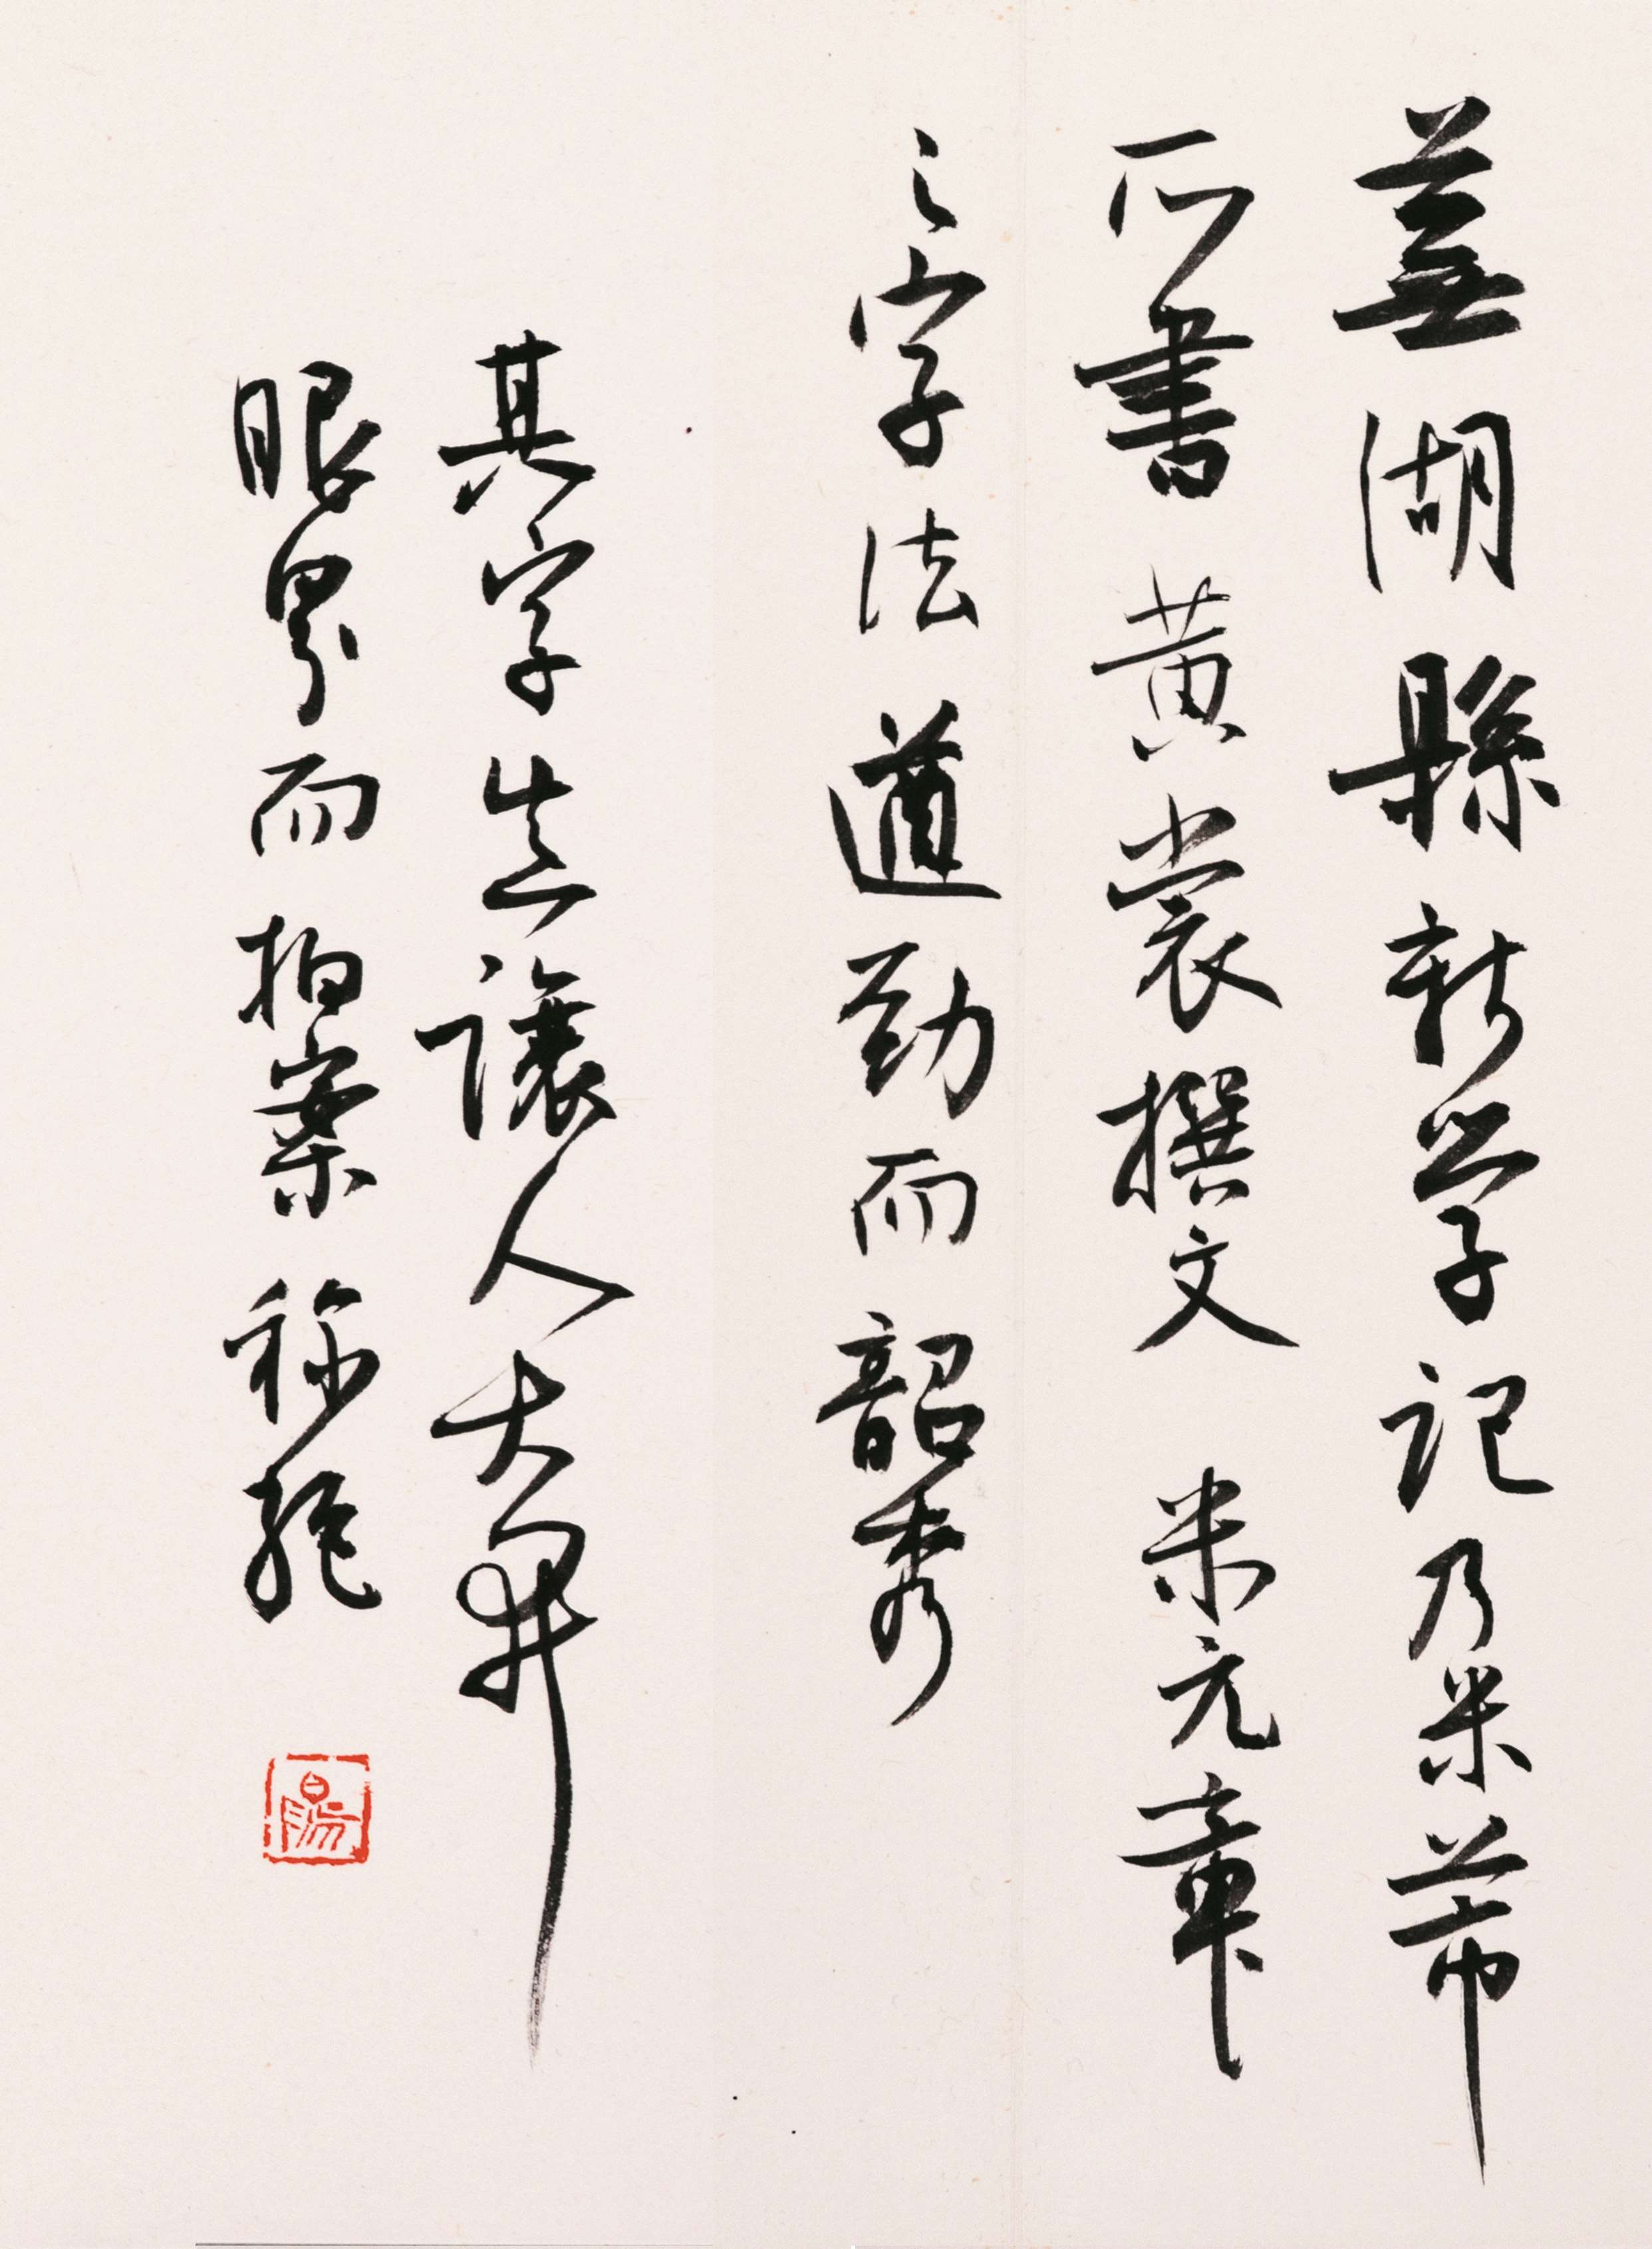 蕪湖縣新學記乃米芾
所書黃裳撰文米元章
之字法遒勁而韶秀
其字生讓人大開
眼界而拍案稱絕